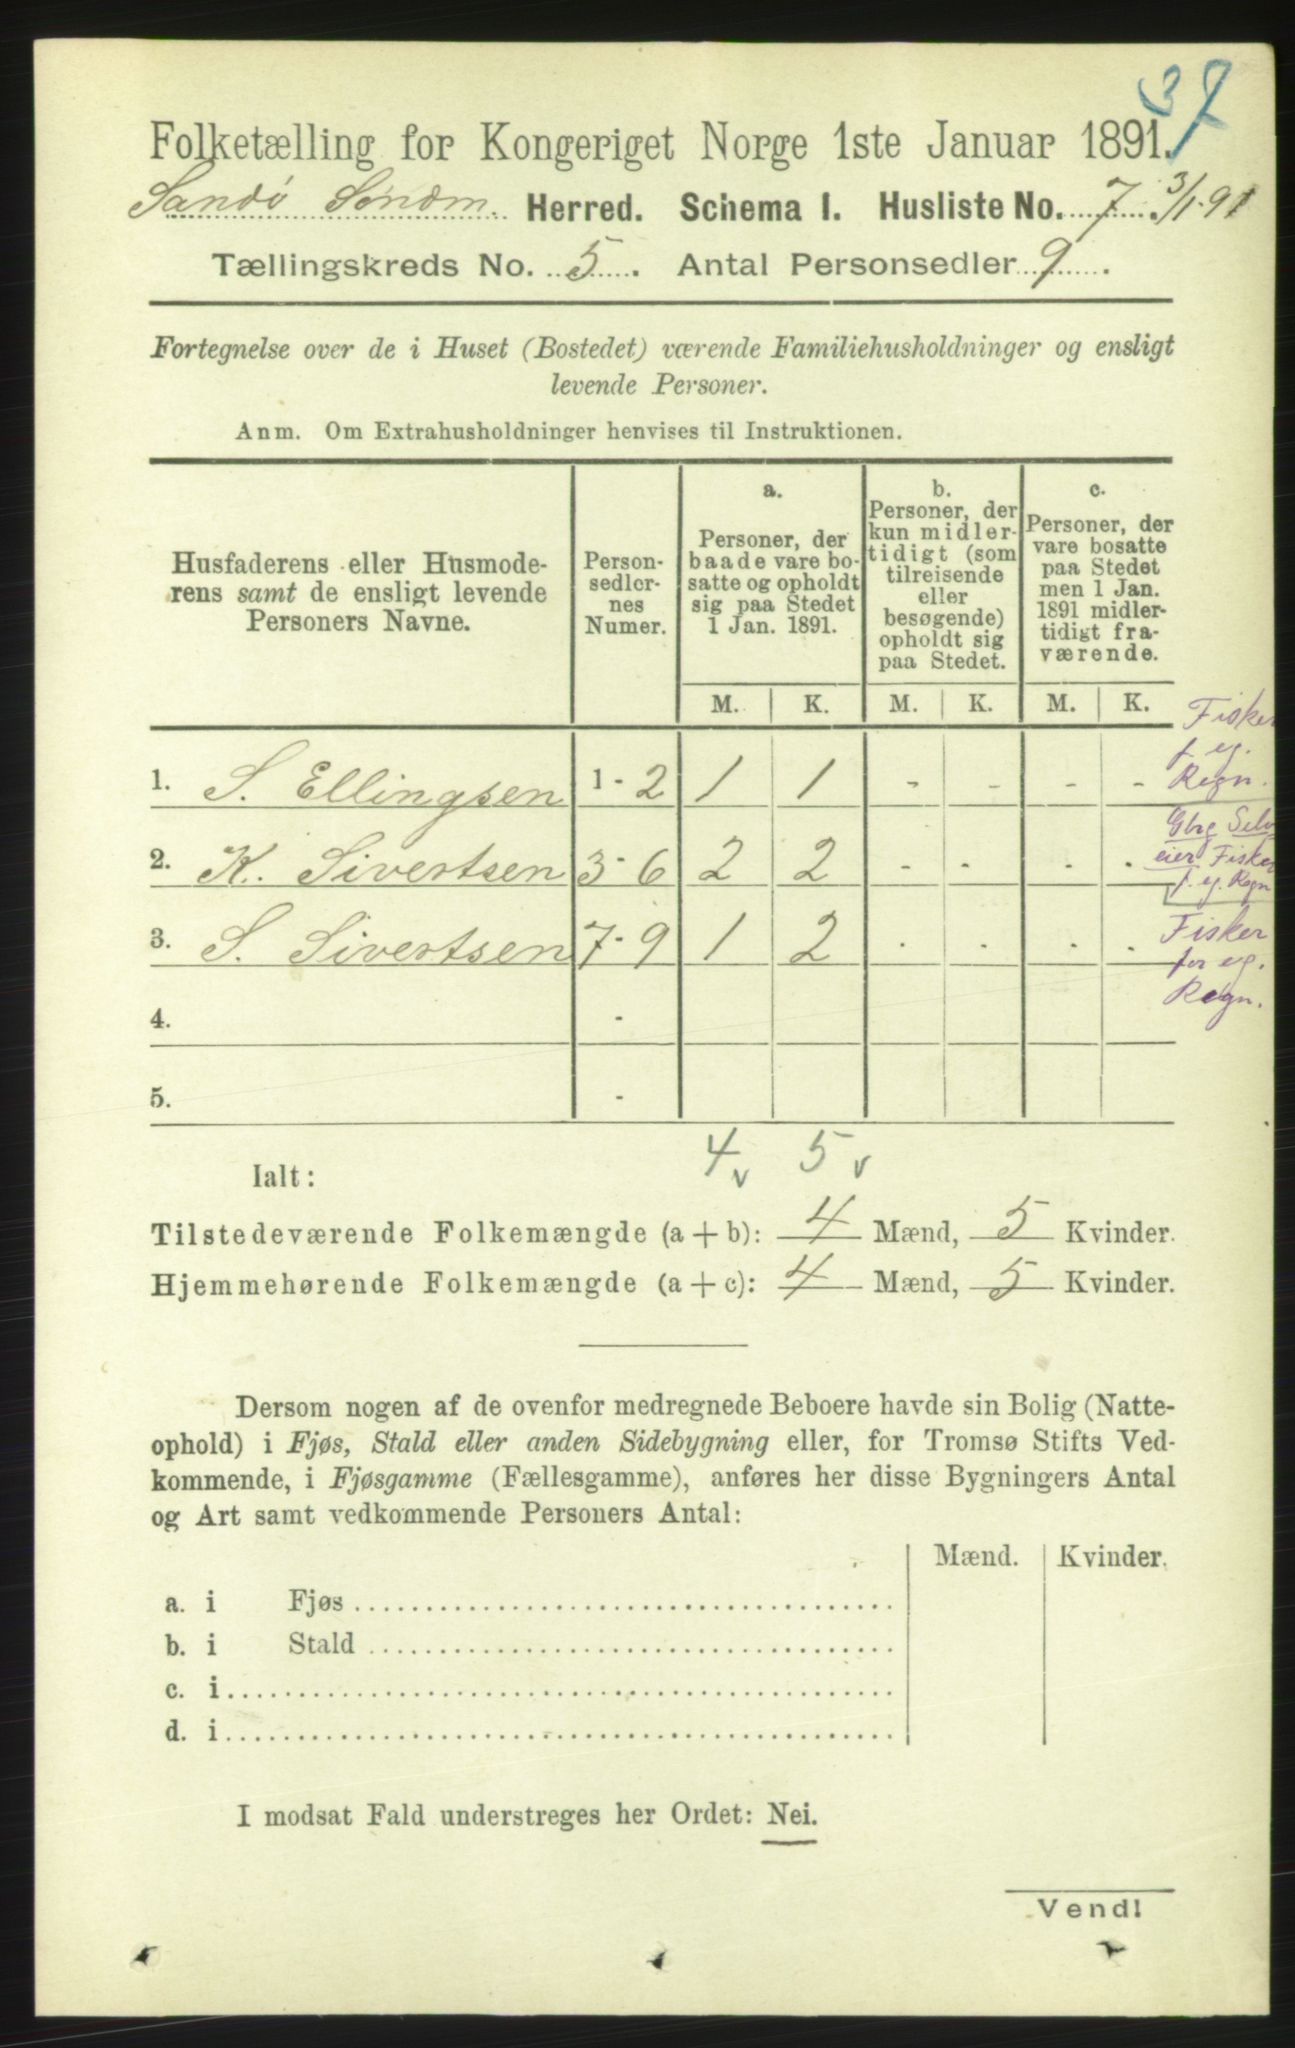 37
Folketælling for Kongeriget Norge 1ste Januar 1891.
Sandø Søndm. Herred. Schema I. Husliste No. 7. 3/1-91
Tællingskreds No. 5. Antal Personsedler 9.
Fortegnelse over de i Huset (Bostedet) værende Familiehusholdninger og ensligt
levende Personer.
Anm. Om Extrahusholdninger henvises til Instruktionen.
Husfaderens eller Husmode-
rens samt de ensligt levende
Personers Navne.
Person-
sedler-
nes
Numer.
a.
Personer, der
baade vare bo-
satte og opholdt
sig paa Stedet
1 Jan. 1891.
b.
Personer, der
kun midler-
tidigt (som
tilreisende
eller
besøgende)
opholdt sig
paa Stedet.
c.
Personer, der
vare bosatte
paa Stedet
men 1 Jan.
1891 midler-
tidigt fra-
værende.
M. K. M. K. M. K.
1. S. Ellingsen 1 - 2 1 1 - - - -
Fisker
f. eg.
Regn.
2. K. Sivertsen 3 - 6 2 2 - - - -
Gbrg Selv
eier Fisker
f. eg. Regn
3. S. Sivertsen 7 - 9 1 2 - - - -
Fisker
for eg.
Regn.
4. -
5. -
Ialt: 4 v 5 v
Tilstedeværende Folkemængde (a + b): 4 Mænd, 5 Kvinder.
Hjemmehørende Folkemængde (a + c): 4 Mænd, 5 Kvinder.
Dersom nogen af de ovenfor medregnede Beboere havde sin Bolig (Natte-
ophold) i Fjøs, Stald eller anden Sidebygning eller, for Tromsø Stifts Ved-
kommende, i Fjøsgamme (Fællesgamme), anføres her disse Bygningers Antal
og Art samt vedkommende Personers Antal:
Mænd. Kvinder.
a. i Fjøs
b. i Stald
c. i
d. i
I modsat Fald understreges her Ordet: Nei.
Vend!